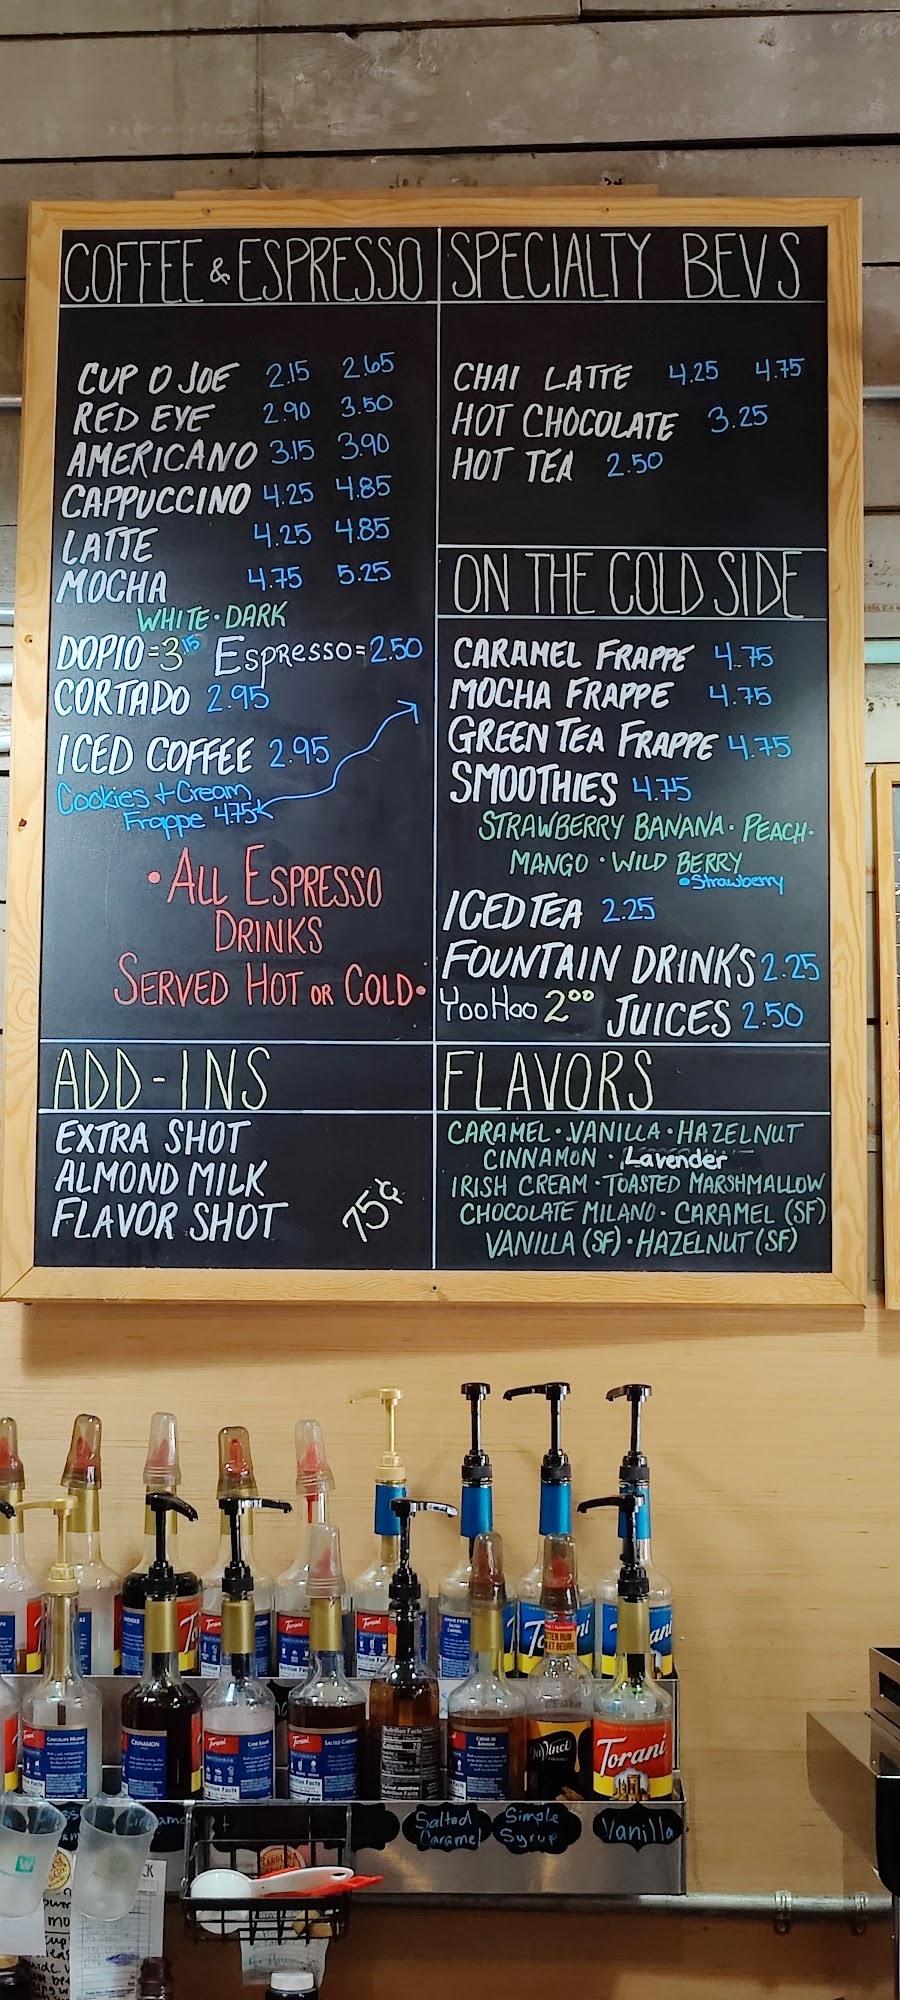 COFFEE & ESPRESSO
CUP O JOE 2.15 2.65
RED EYE 2.90 3.50
AMERICANO 3.15 3.90
CAPPUCCINO 4.25 4.85
LATTE 4.25 4.85
MOCHA 4.75 5.25
WHITE · DARK
DOPIO = 3 15 Espresso = 2.50
CORTADO 2.95
ICED COFFEE 2.95
Cookies + Cream
Frappe 4.75
• ALL ESPRESSO
DRINKS
SERVED HOT OR COLD •
ADD-INS
EXTRA SHOT
ALMOND MILK
FLAVOR SHOT 75¢
SPECIALTY BEVS
CHAI LATTE 4.25 4.75
HOT CHOCOLATE 3.25
HOT TEA 2.50
ON THE COLD SIDE
CARAMEL FRAPPE 4.75
MOCHA FRAPPE 4.75
GREEN TEA FRAPPE 4.75
SMOOTHIES 4.75
STRAWBERRY BANANA · PEACH ·
MANGO · WILD BERRY
• Strawberry
ICED TEA 2.25
FOUNTAIN DRINKS 2.25
YooHoo 2 00 JUICES 2.50
FLAVORS
CARAMEL · VANILLA · HAZELNUT
CINNAMON · Lavender
IRISH CREAM · TOASTED MARSHMALLOW
CHOCOLATE MILANO · CARAMEL (SF)
VANILLA (SF) · HAZELNUT (SF)
Torani
CINNAMON
Torani
Torani
SALTED CARAMEL
Nutrition Facts
DaVinci
Torani
Salted
Caramel
Simple
Syrup
Vanilla